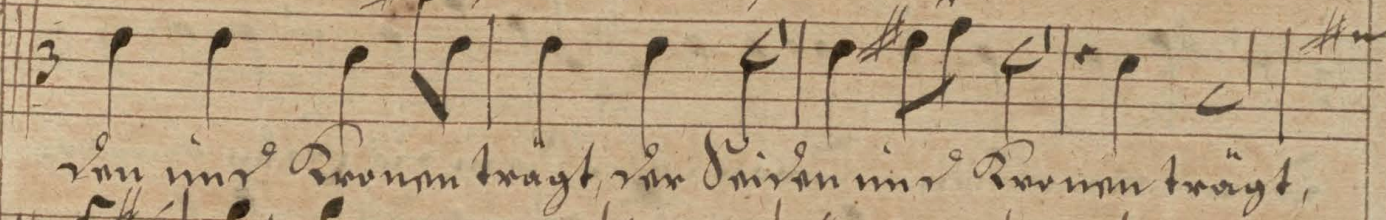 3
den und Kronen trägt, der Seiden und Kronen trägt,